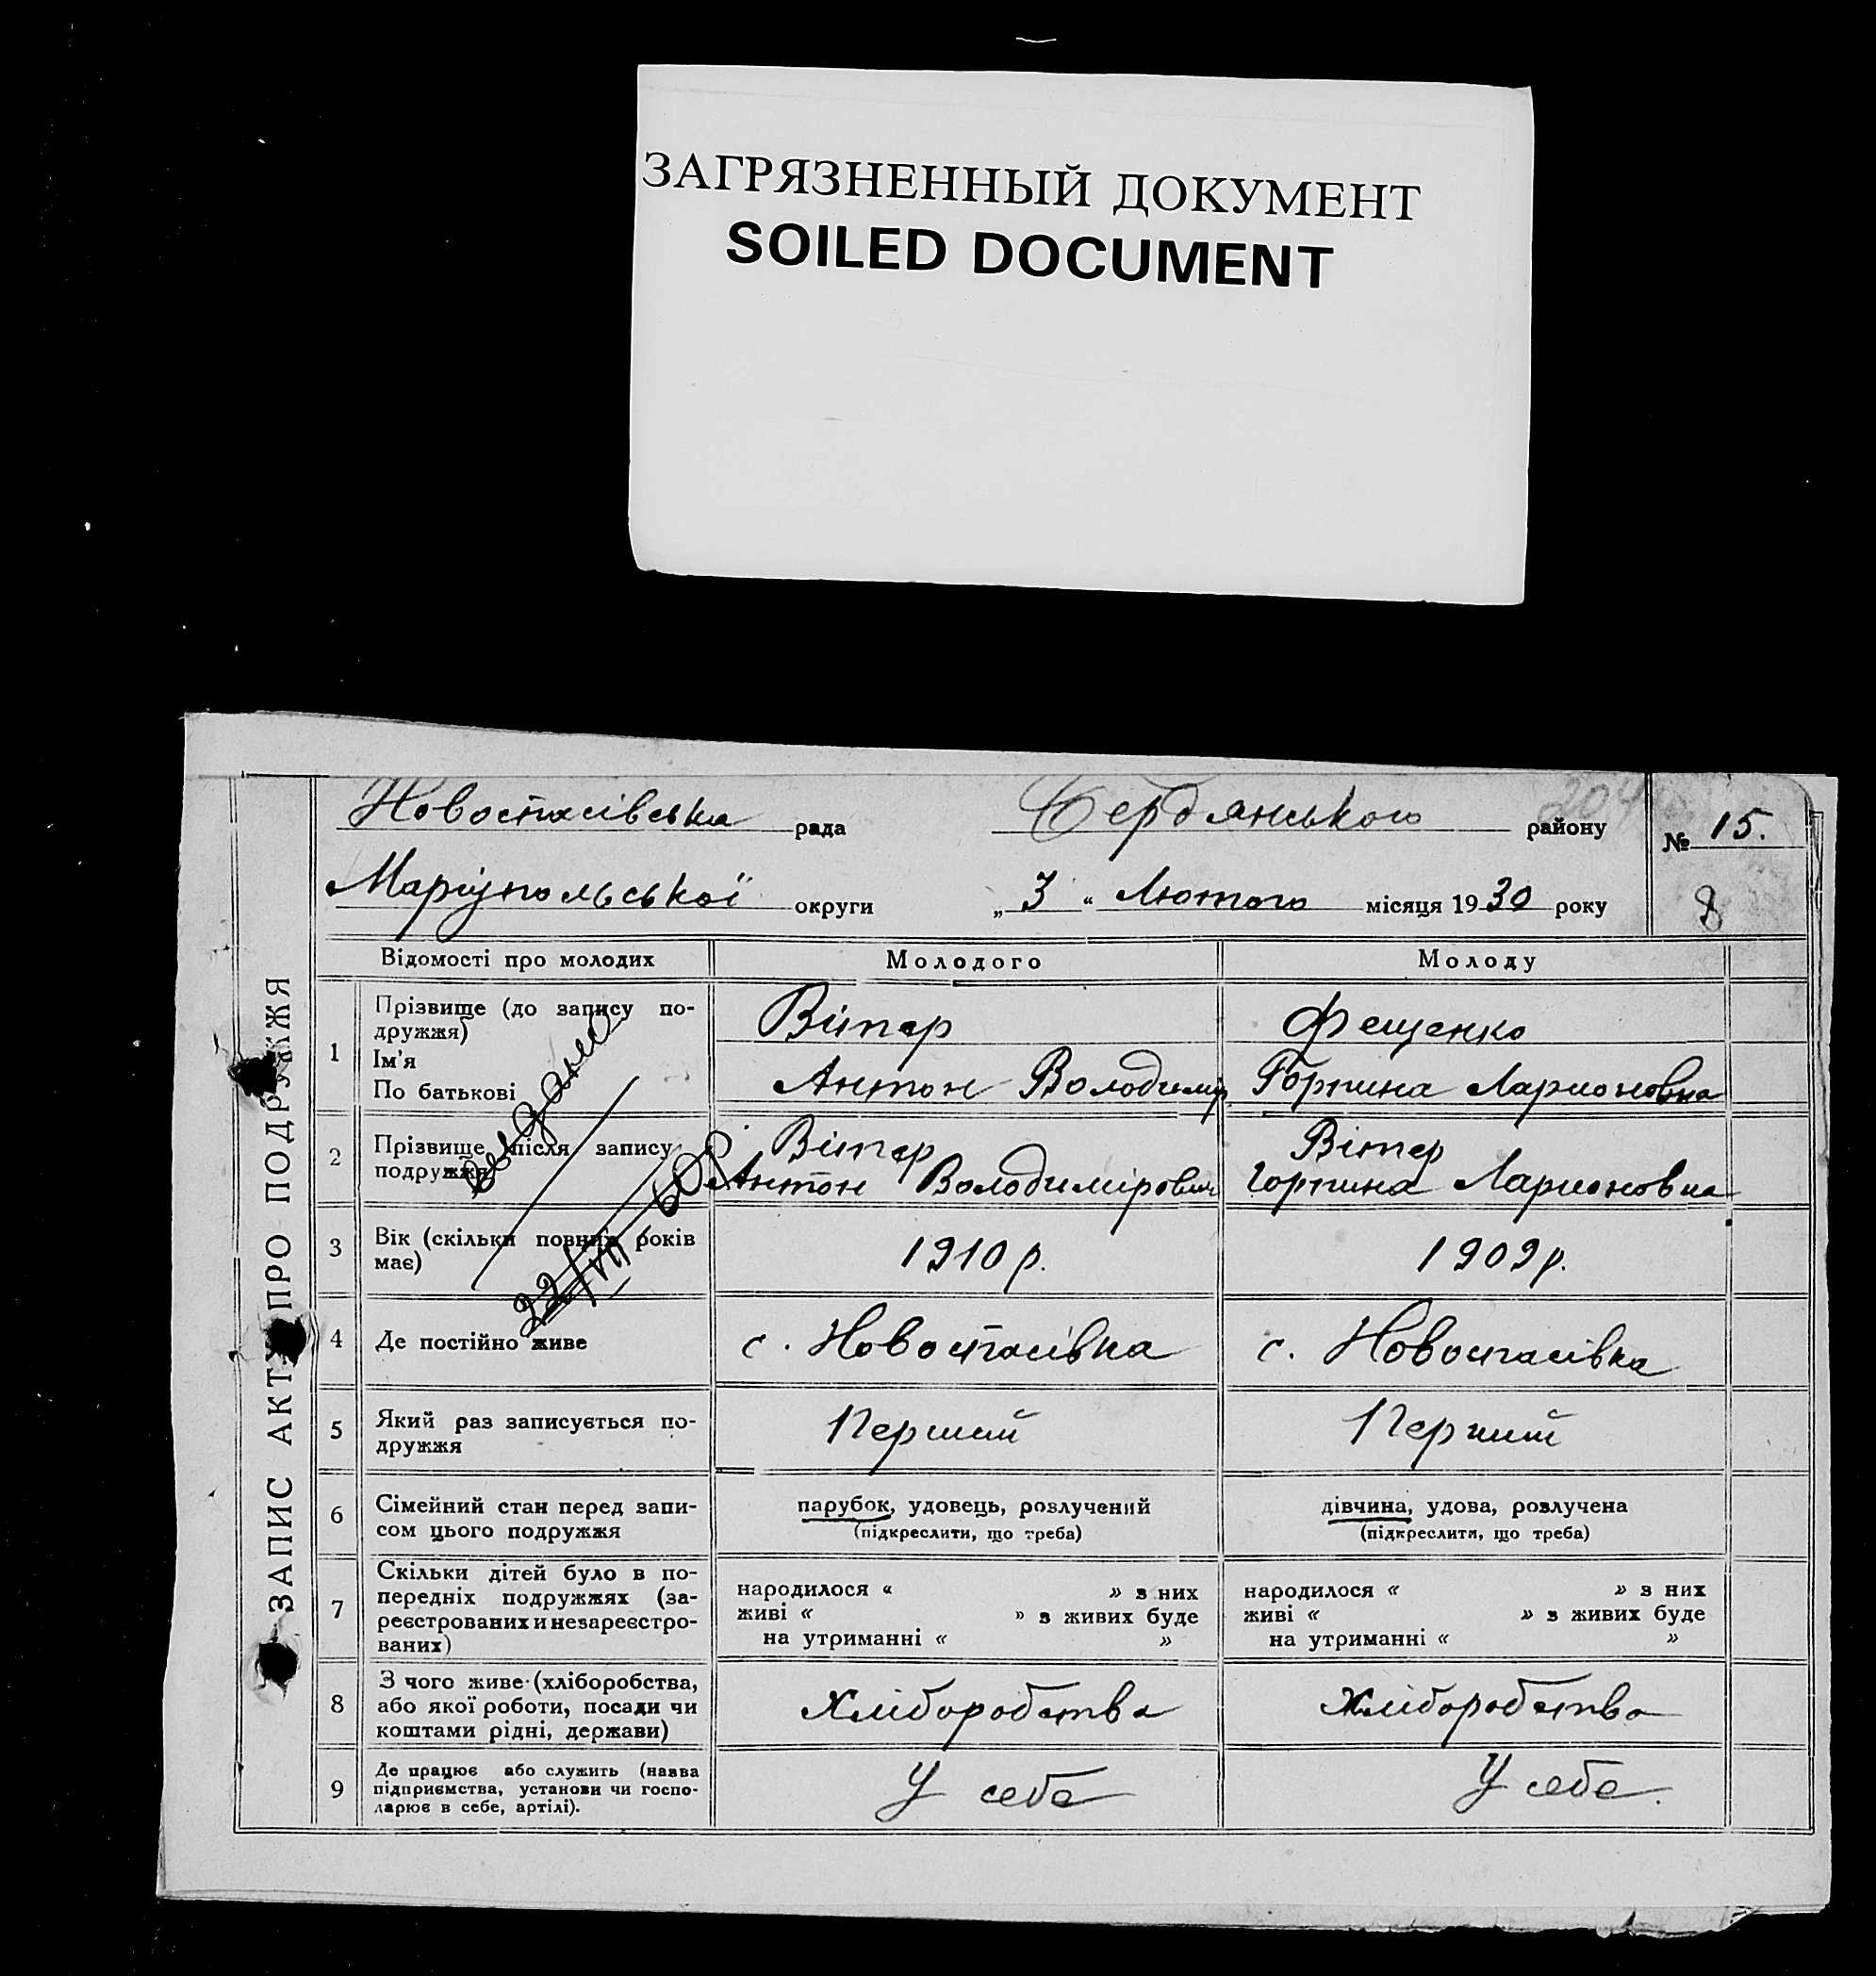 ЗАГРЯЗНЕННЫЙ ДОКУМЕНТ
SOILED DOCUMENT
Новоспасівська рада Бердянського району № 15.
204
Маріупольської округи „ 3 “ Лютого місяця 1930 року
8
ЗАПИС АКТУ ПРО ПОДРУЖЖЯ
Відомості про молодих Молодого Молоду
1 Прізвище (до запису по-
дружжя) Вітер Фещенко
Ім'я
По батькові Антон Володимир Горпина Ларионовна
2 Прізвище після запису
подружжя Вітер Антон Володимірович Вітер Горпина Ларионовна
выдано
22/VII 60
3 Вік (скільки повних років
має) 1910 р. 1909 р.
4 Де постійно живе с. Новоспасівка с. Новоспасівка
5 Який раз записується по-
дружжя Перший Перший
6 Сімейний стан перед запи-
сом цього подружжя
парубок, удовець, розлучений
(підкреслити, що треба)
дівчина, удова, розлучена
(підкреслити, що треба)
7 Скільки дітей було в по-
передніх подружжях (за-
реєстрованих и незареєстро-
ваних)
народилося « » з них
живі « » з живих буде
на утриманні « »
народилося « » з них
живі « » з живих буде
на утриманні « »
8 З чого живе (хліборобства,
або якої роботи, посади чи
коштами рідні, держави)
Хліборобства Хліборобства
9 Де працює або служить (назва
підприємства, установи чи госпо-
дарює в себе, артілі).
У себе У себе.